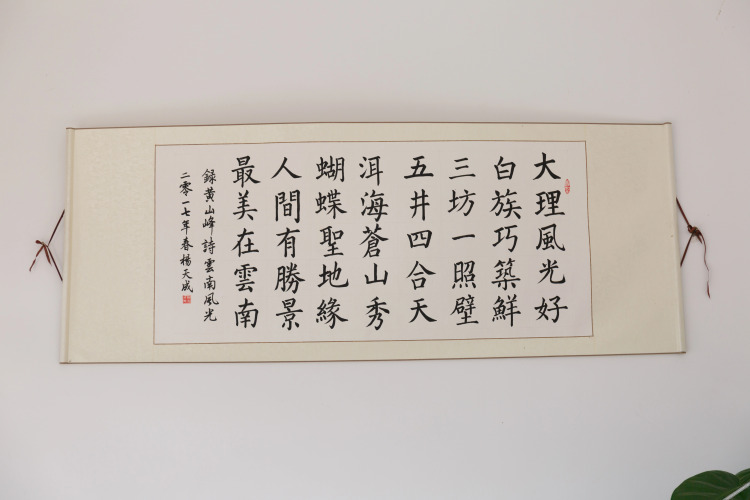 大理風光好
白族巧築鮮
三坊一照壁
五井四合天
洱海蒼山秀
蝴蝶聖地緣
人間有勝景
最美在雲南
録黄山峰詩雲南風光
二零一七年春楊天成